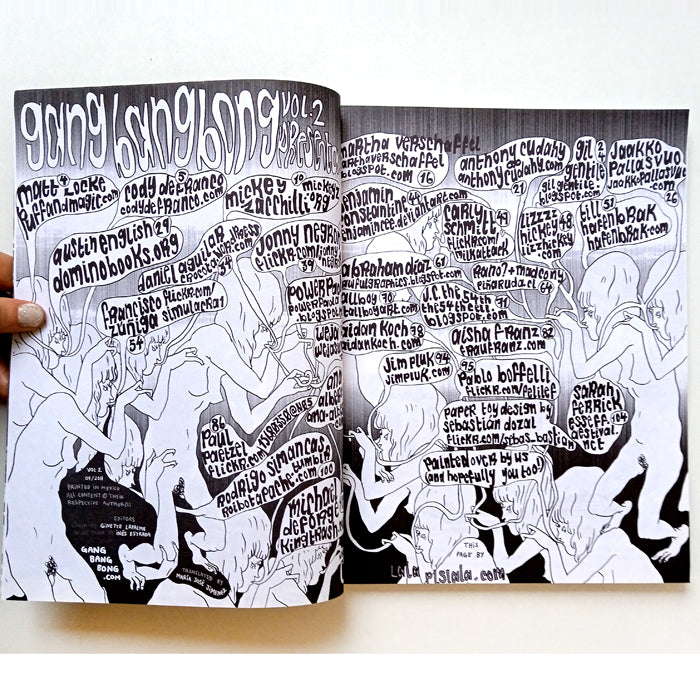 gang bang bong
VOL.2
presents
matt locke 4
puffandmagic.com
cody defranco 5
codydefranco.com
mickey 10
zacchilli
mickey
.org
austin english 29
dominobooks.org
daniel aguilar
34
jonny negron
flickr.com/
39
francisco
zuniga
flickr.com/
simulacra1
54
POWER
86
paul
paetzel
flickr.com/
rodrigo simancas
roibotapache.tumblr
.com 100
michael
deforge
kingtrash.
VOL 2
09/2011
PRINTED IN MEXICO
ALL CONTENT © THEIR
RESPECTIVE AUTHOR(S)
EDITORS
GINETTE LAPALME
INÉS ESTRADA
GANG
BANG
BONG
.COM
TRANSLATED BY
MARÍA JOSÉ JIMÉNEZ
martha verschaffel
marthaverschaffel
blogspot.com 16
anthony cudahy
anthonycudahy.com
21
gil
gentile
24
gilgentile.
blogspot.com
Jaakko
Pallasvuo
JaakkoPallasvuo
.com
26
benjamin
constantine 44
benjamincee.deviantart.com
carlyn
schmitt
49
flickr.com
milkattack
lizzz
hickey
48
lizzhickey
.com
till 51
hafenbrak
hafenbrak.com
abraham diaz 61
awfulgraphics.blogspot.com
Raino? + madcony
pinarudzel 64
tallboy 70
tallboyart.com
J.C. the 54th
71
the54thcell.
blogspot.com
aidan koch 78
aidankoch.com
aisha franz 82
fraufranz.com
Jim Pluk 94
jimpluk.com
95
Pablo boffelli
flickr.com/felilef
sarah
ferrick
104
esseff
aestival
.net
PAPER toy design by
sebastian dozal
flickr.com/sebas_bastian
Painted over by us
(and hopefully you too!)
THIS
PAGE BY
LALA
pislala.com